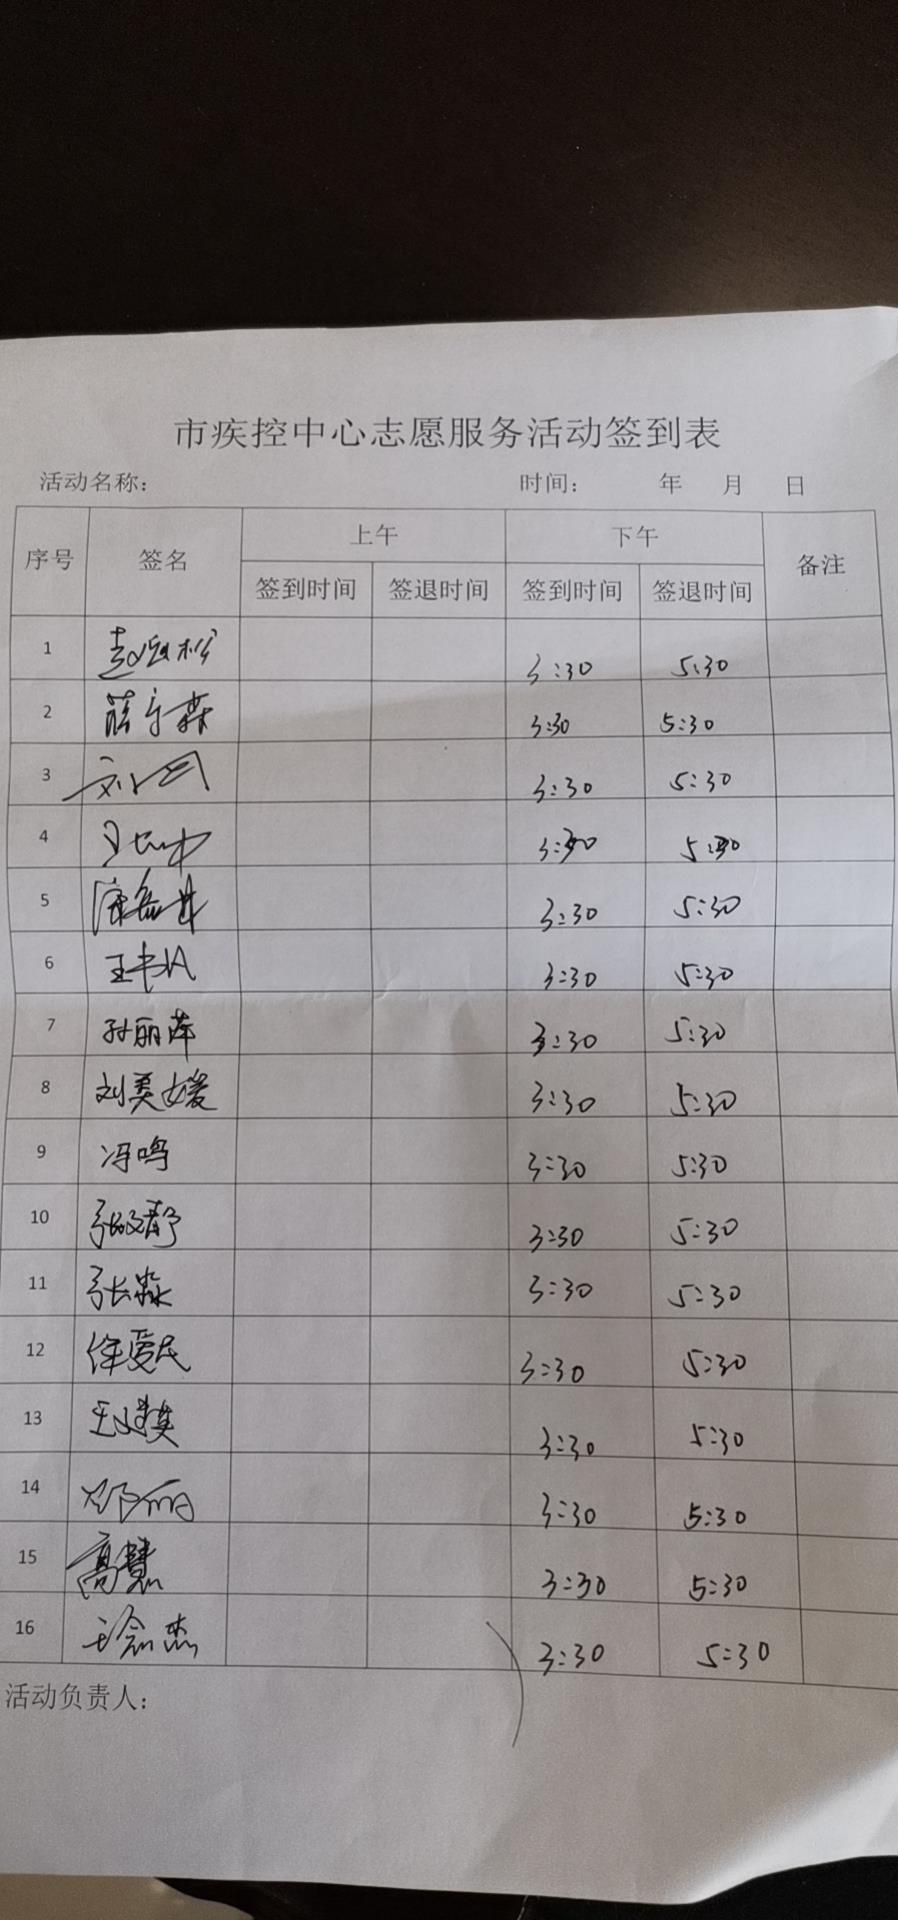 市疾控中心志愿服务活动签到表
活动名称： 时间： 年 月 日
序号 签名 上午 下午 备注
签到时间 签退时间 签到时间 签退时间
1 3:30 5:30
2 3:30 5:30
3 3:30 5:30
4 3:30 5:30
5 3:30 5:30
6 3:30 5:30
7 孙丽萍 3:30 5:30
8 刘美媛 3:30 5:30
9 冯鸣 3:30 5:30
10 张文静 3:30 5:30
11 张淼 3:30 5:30
12 徐爱民 3:30 5:30
13 3:30 5:30
14 郑丽 3:30 5:30
15 高慧 3:30 5:30
16 王念杰 3:30 5:30
活动负责人：